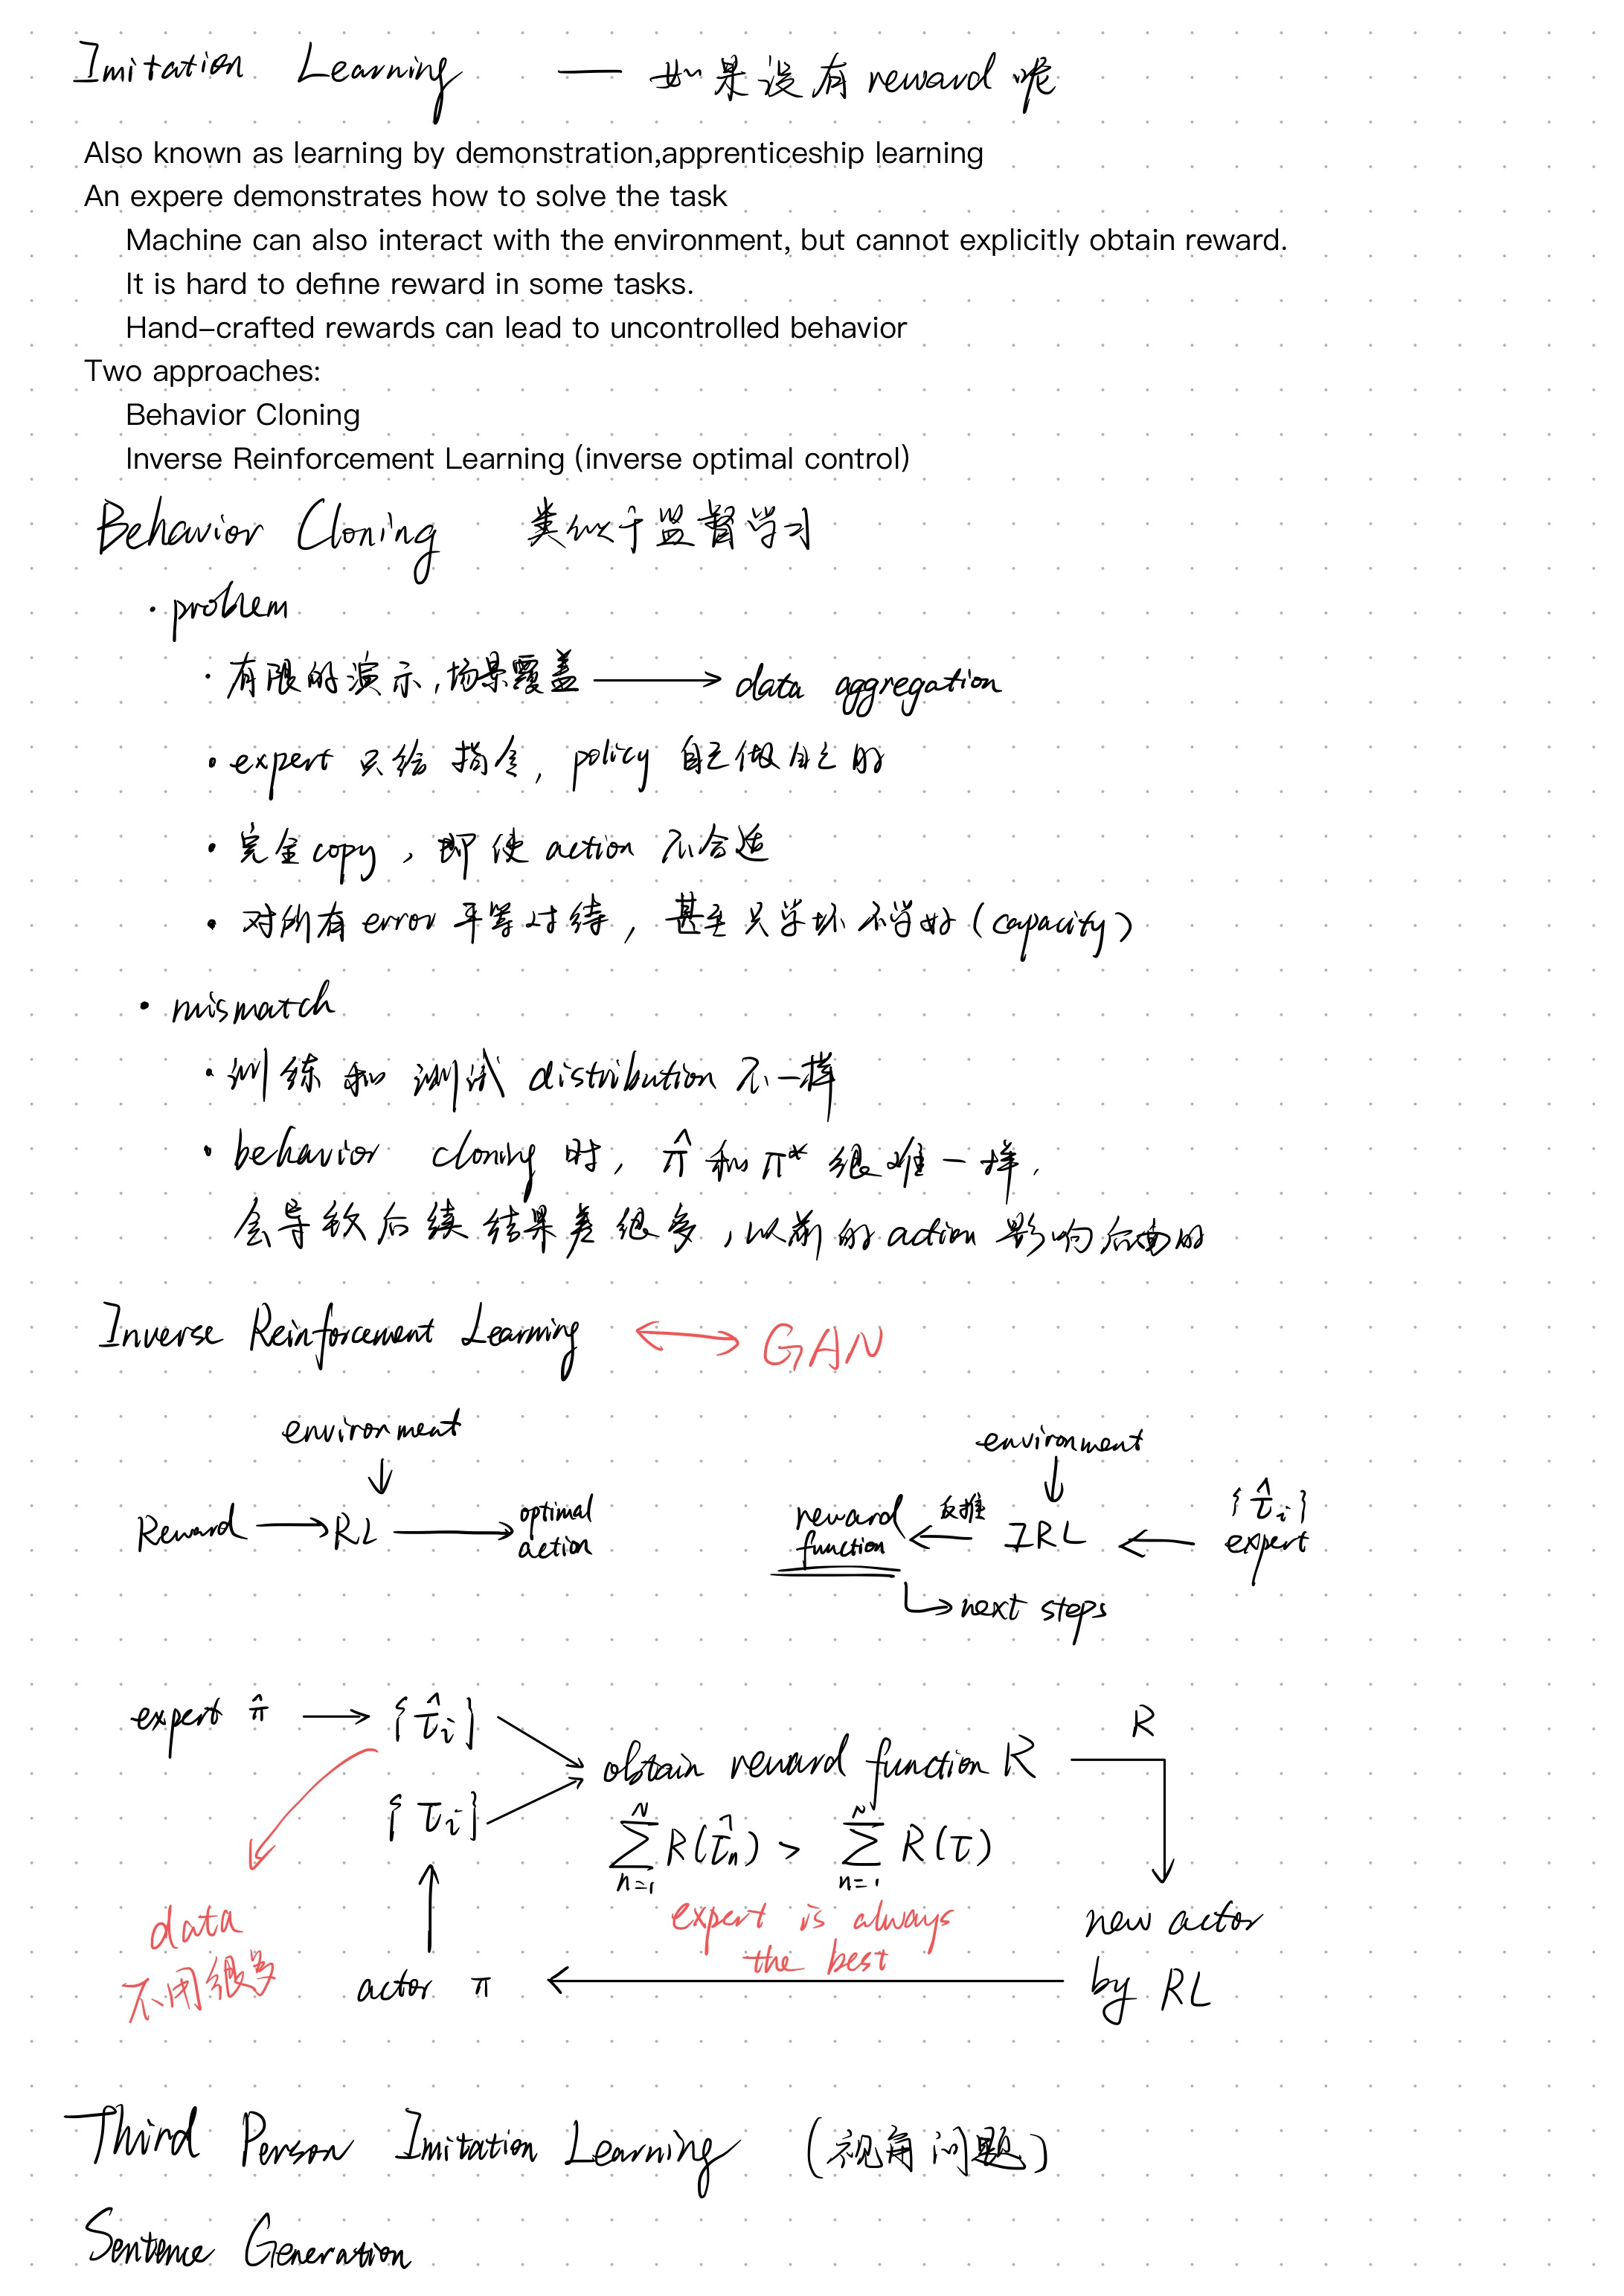 Imitation Learning — 如果没有reward呢
Also known as learning by demonstration,apprenticeship learning
An expere demonstrates how to solve the task
Machine can also interact with the environment, but cannot explicitly obtain reward.
It is hard to define reward in some tasks.
Hand-crafted rewards can lead to uncontrolled behavior
Two approaches:
Behavior Cloning
Inverse Reinforcement Learning (inverse optimal control)
Behavior Cloning 类似于监督学习
· problem
· 有限的演示,场景覆盖 → data aggregation
· expert 只给指令, policy 自己做自己的
· 完全copy, 即使 action 不合适
· 对所有 error 平等对待, 甚至只学坏不学好 (capacity)
· mismatch
· 训练和测试 distribution 不一样
· behavior cloning 时, π̂ 和 π* 很难一样,
会导致后续结果差很多, 以前的action 影响后面的
Inverse Reinforcement Learning ↔ GAN
environment
↓
Reward → RL → optimal action
environment
↓
reward function ← 反推 IRL ← {τ̂i} expert
↳ next steps
expert π̂ → {τ̂i}
{τi}
obtain reward function R
R
∑_{n=1}^{N} R(τ̂n) > ∑_{n=1}^{N} R(τ)
expert is always
the best
data
不用很多
new actor
by RL
actor π ←
Third Person Imitation Learning (视角问题)
Sentence Generation